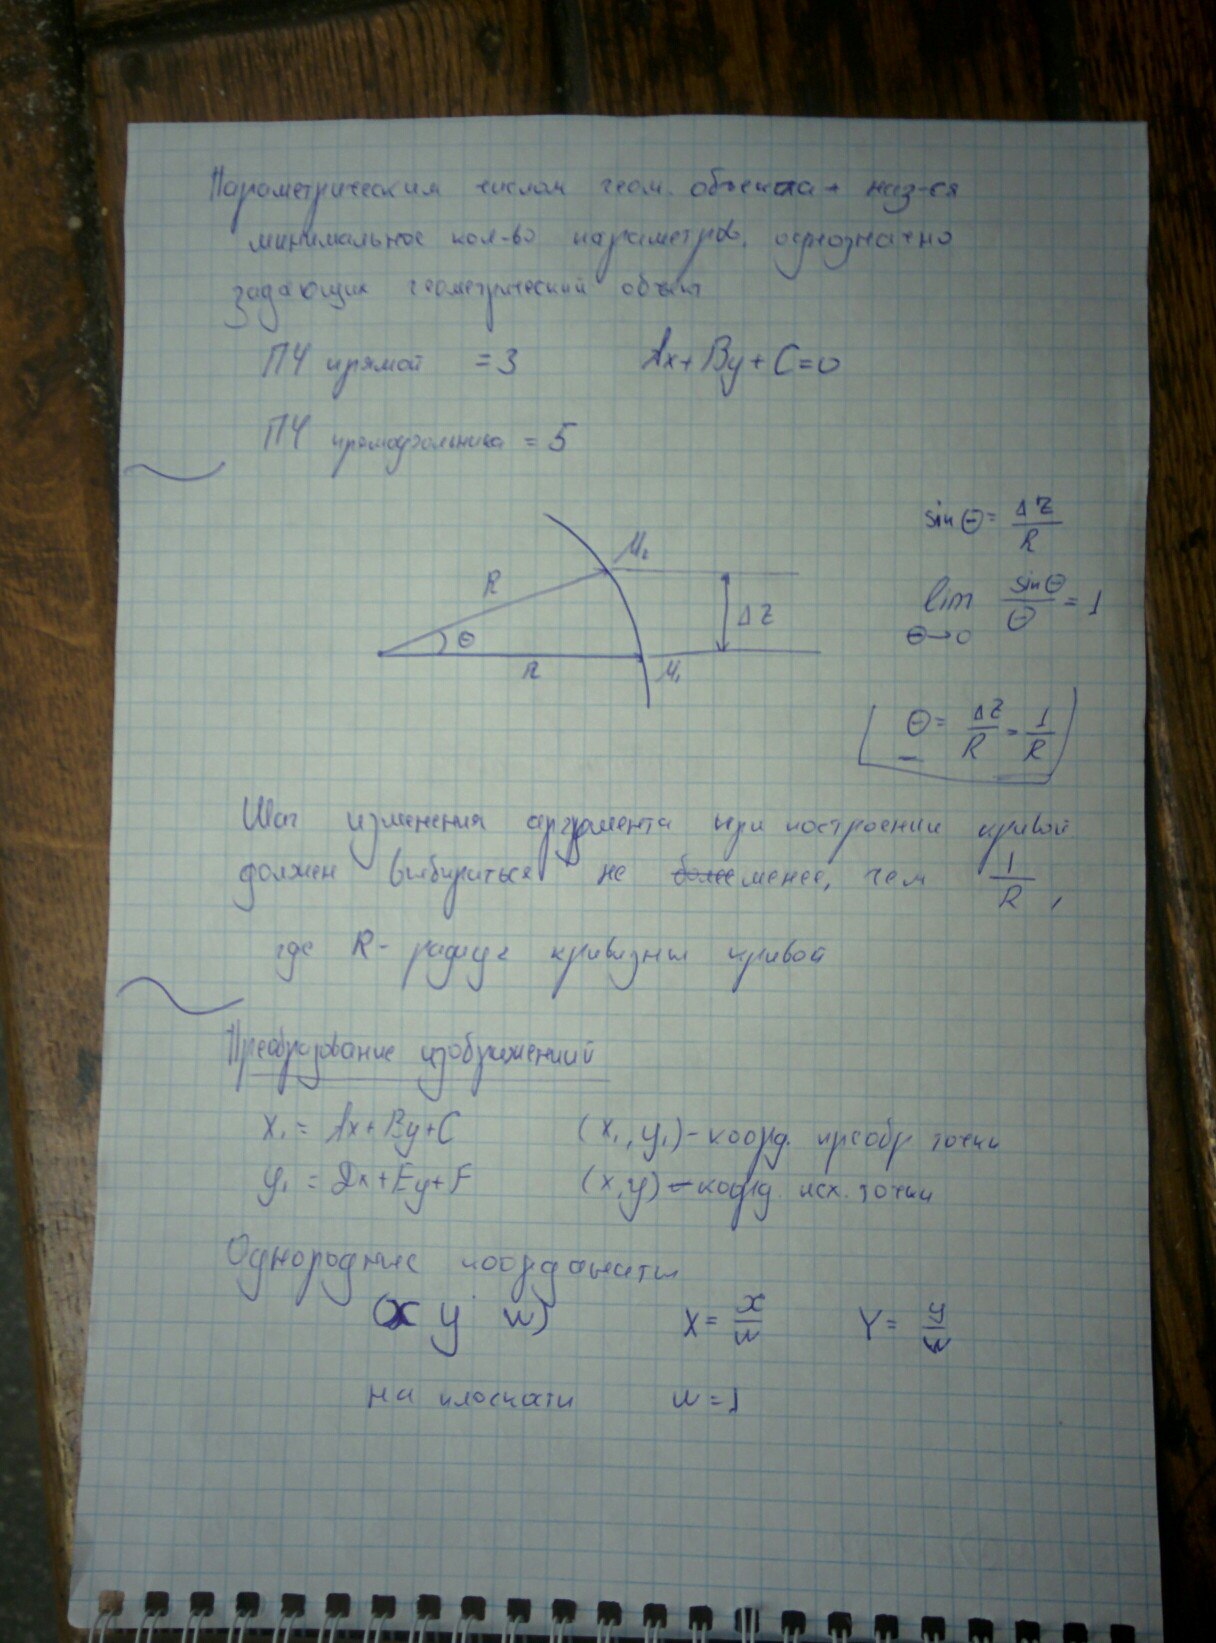 Параметрическим числом геом. объекта - наз-ся
минимальное кол-во параметров, однозначно
задающих геометрический объект
ПЧ прямой = 3 Ax+By+C=0
ПЧ прямоугольника = 5
sinΘ = ΔZ/R
M₂
R
lim sinΘ/Θ = 1
Θ→0
ΔZ
Θ
R
M₁
Θ = ΔZ/R = 1/R
Шаг изменения аргумента при построении кривой
должен выбираться не более менее, чем 1/R,
где R - радиус кривизны кривой
Преобразование изображений
x₁ = Ax+By+C (x₁, y₁) - коорд. преобр точки
y₁ = Dx+Ey+F (x,y) - коорд. исх. точки
Однородные координаты
(x y w) X = x/w Y = y/w
на плоскати w=1